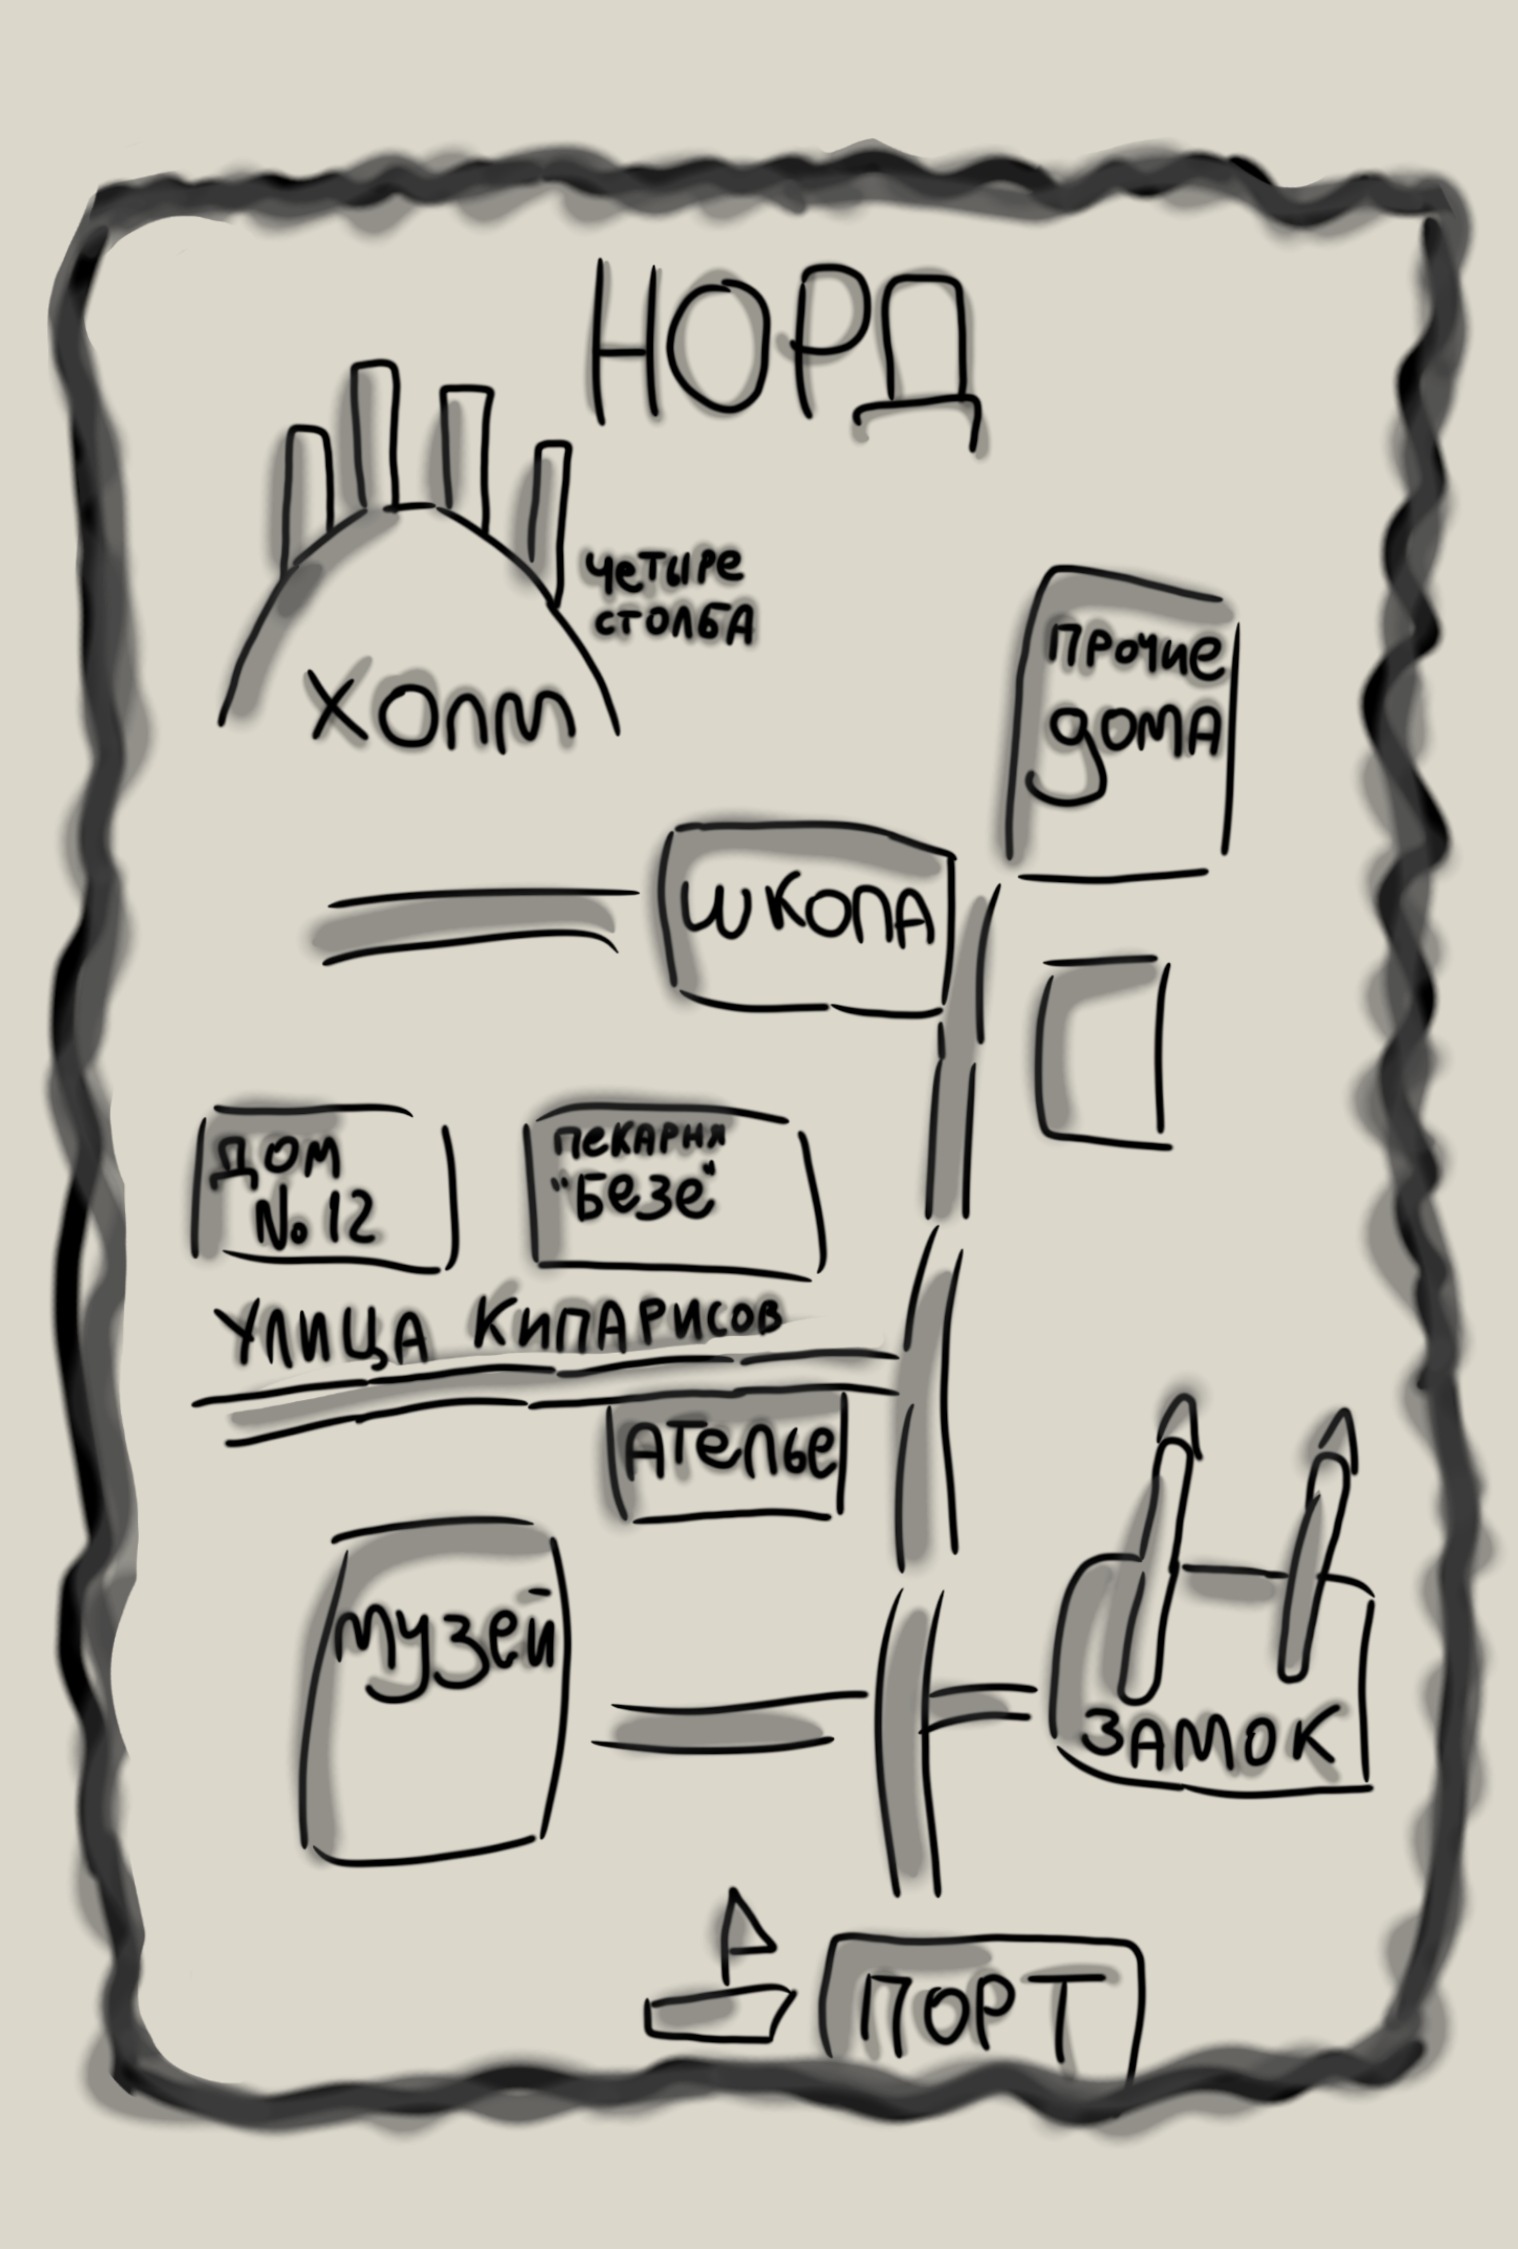 НОРД
четыре
столба
Холм
Прочие
дома
Школа
Дом
№12
Пекарня
"Безе"
Улица Кипарисов
Ателье
Музей
Замок
Порт